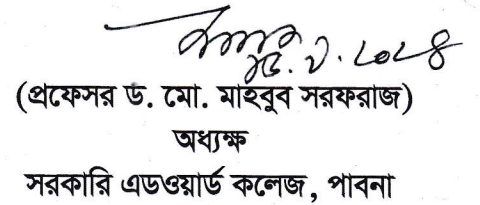 (প্রফেসর ড. মো. মাহবুব সরফরাজ)
অধ্যক্ষ
সরকারি এডওয়ার্ড কলেজ, পাবনা